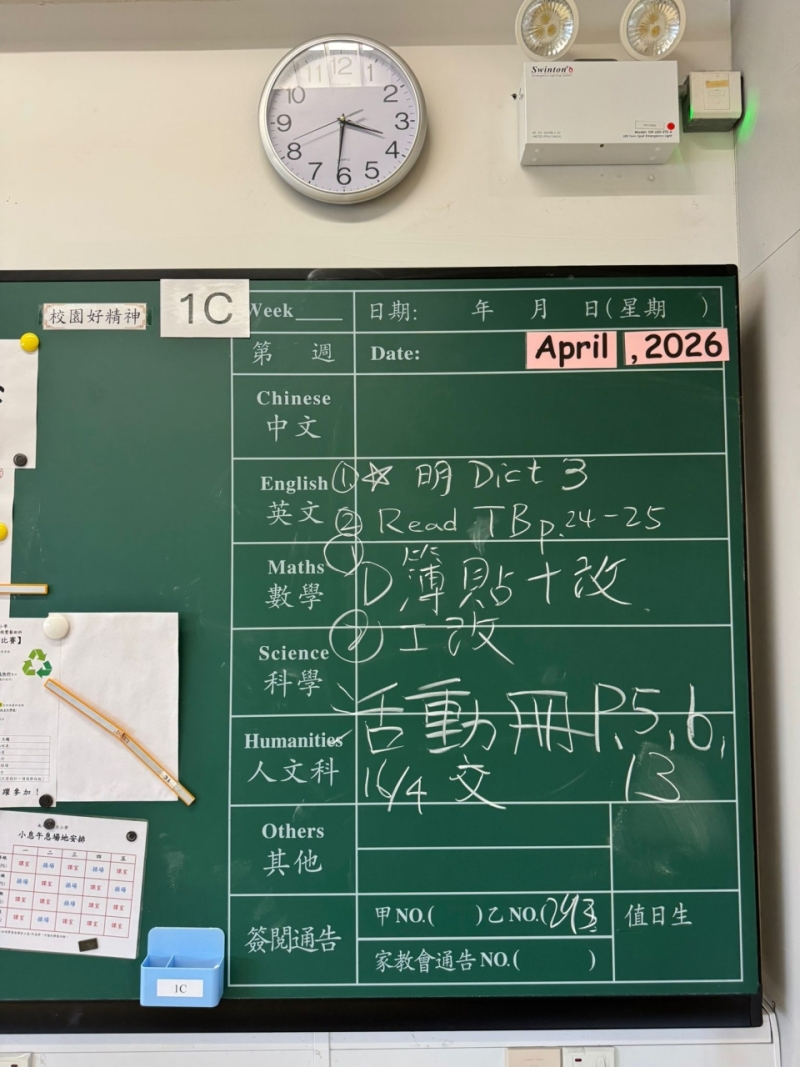 12
11 1
10 2
9 3
8 4
7 6 5
Swinton
校園好精神
1C
Week
日期: 年 月 日(星期 )
第 週
Date:
April , 2026
Chinese
中文
English
英文
① ☆ 明 Dict 3
② Read TB p.24-25
Maths
數學
① 簿貼+改
② 工改
Science
科學
Humanities
人文科
活動冊 P.5, 6,
13
16/4 交
Others
其他
簽閱通告
甲NO.( )乙NO.(243
家教會通告NO.( )
值日生
小息午息場地安排
一 二 三 四 五
躍參加！
1C